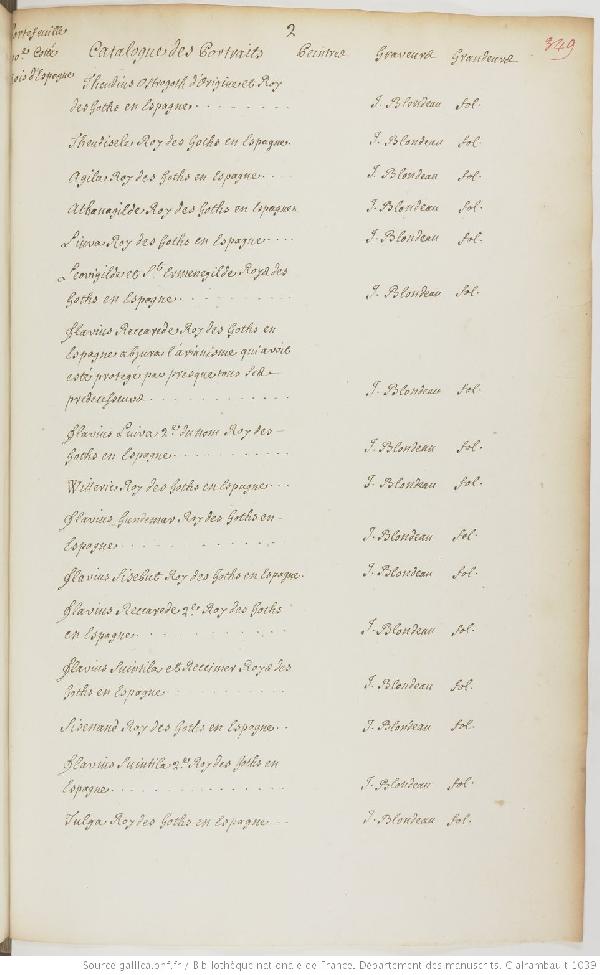 2
349
Portefeuille
Rois d'Espagne
Catalogue des Portraits Peintre Graveurs Grandeurs
Theudius Ostrogoth d'Origine et Roy
des Goths en Espagne . . . . . . . . J. Blondeau fol.
Theudisele Roy des Goths en Espagne. J. Blondeau fol.
Agila Roy des Goths en Espagne . . . J. Blondeau fol.
Athanagilde Roy des Goths en Espagne J. Blondeau fol.
Liuva Roy des Goths en Espagne . . . . J. Blondeau fol.
Leovigilde et St. Ermenegilde Roys des
Goths en Espagne . . . . . . . . . . J. Blondeau fol.
Flavius Reccarede Roy des Goths en
Espagne abjura l'arianisme qu'avoit
esté protegé par presque tous ses
predecesseurs . . . . . . . . . . . . J. Blondeau fol.
Flavius Luiva 2.e du nom Roy des
Goths en Espagne . . . . . . . . . . J. Blondeau fol.
Witteric Roy des Goths en Espagne . . . J. Blondeau fol.
Flavius Gundemar Roy des Goths en
Espagne . . . . . . . . . . J. Blondeau fol.
Flavius Sisebut Roy des Goths en Espagne. J. Blondeau fol.
Flavius Reccarede 2.e Roy des Goths
en Espagne . . . . . . . . . . . J. Blondeau fol.
Flavius Suintila et Reccimer Roys des
Goths en Espagne . . . . . . . . . J. Blondeau fol.
Sisenand Roy des Goths en Espagne . . J. Blondeau fol.
Flavius Suintila 2.e Roy des Goths en
Espagne . . . . . . . . . . . . . J. Blondeau fol.
Tulga Roy des Goths en Espagne . . . J. Blondeau fol.
Source gallica.bnf.fr / Bibliothèque nationale de France. Département des manuscrits. Clairambault 1039